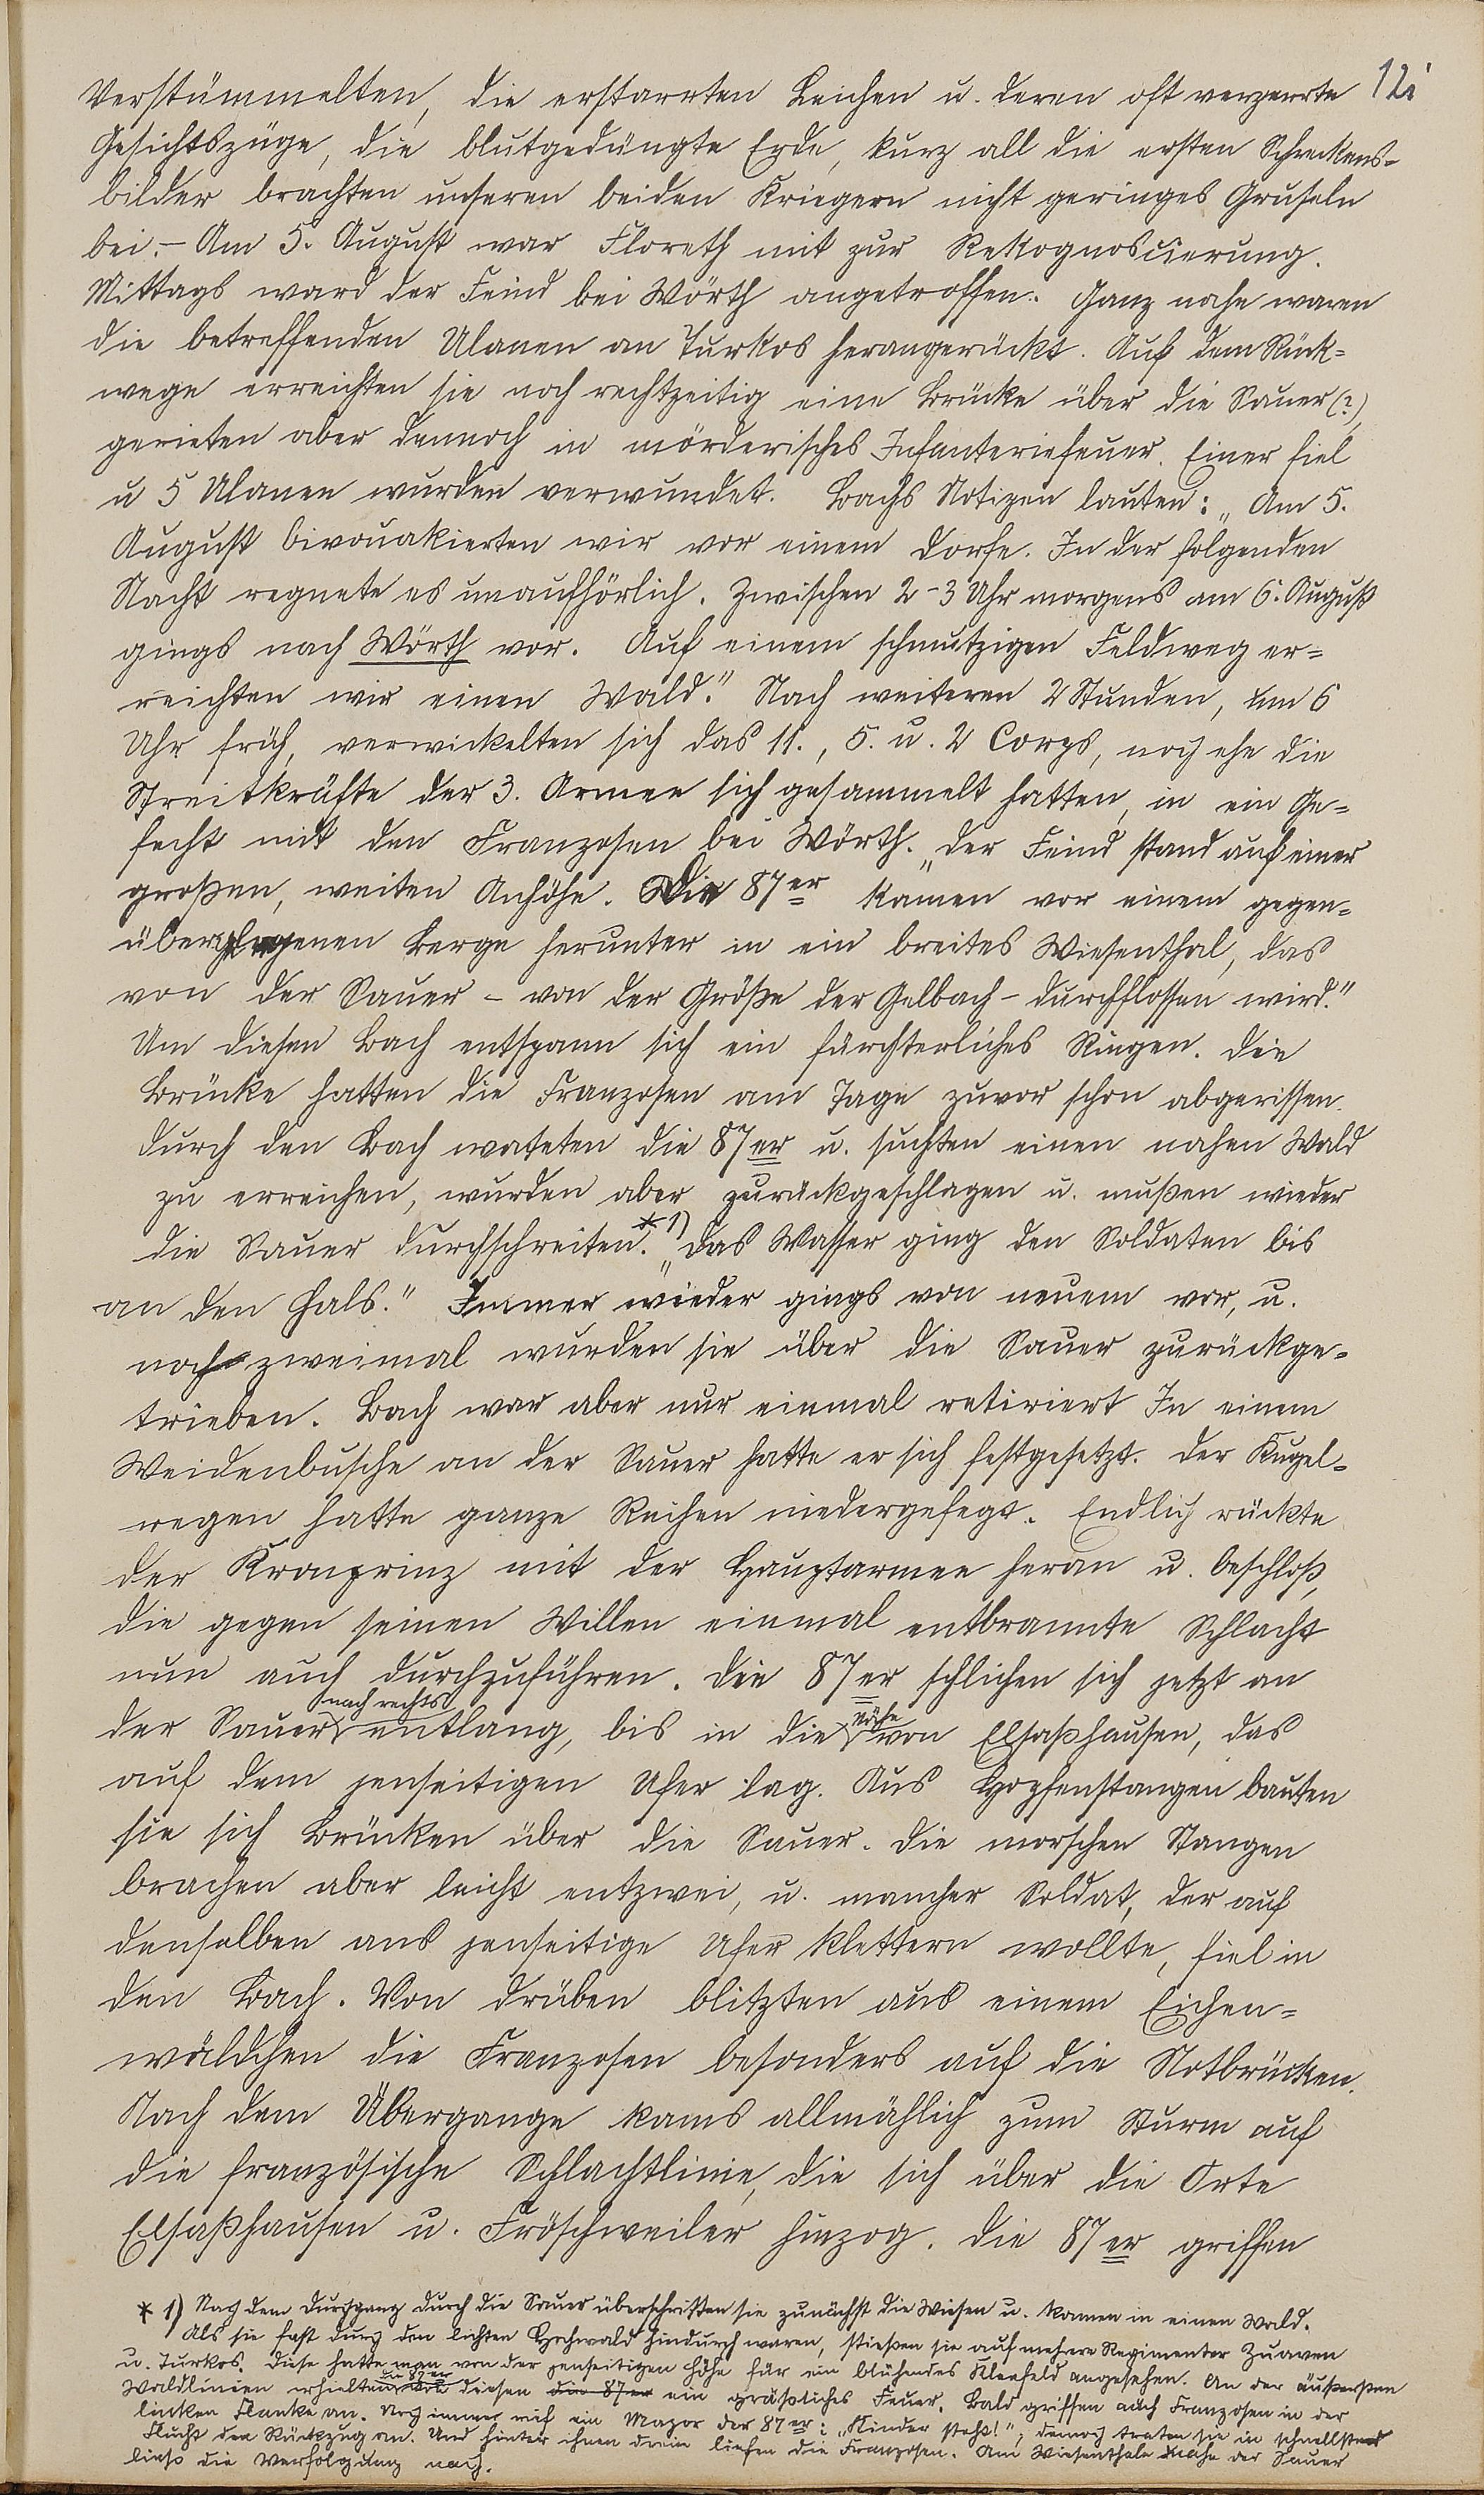 12i
Verstümmelten, die erstarrten Leichen u. deren oft verzerrte
Gesichtszüge, die blutgedüngte Erde, kurz all die ersten Schreckens-
bilder brachten unseren beiden Kriegern nicht geringes Gruseln
bei. – Am 5. August war Floreth mit zur Rekognoscierung.
Mittags ward der Feind bei Wörth angetroffen. Ganz nahe waren
die betreffenden Ulanen an Turkos herangerückt. Auf dem Rück=
wege erreichten sie noch rechtzeitig eine Brücke über die Sauer (?),
gerieten aber dennoch in mörderisches Infanteriefeuer. Einer fiel
u 5 Ulanen wurden verwundet. Bachs Notizen lauten: „Am 5.
August bivouakierten wir vor einem Dorfe. In der folgenden
Nacht regnete es unaufhörlich. Zwischen 2-3 Uhr morgens am 6. August
gings nach Wörth vor. Auf einem schmutzigen Feldweg er=
reichten wir einen Wald." Nach weiteren 2 Stunden, um 6
Uhr früh, verwickelten sich das 11., 5. u. 2 Corps, noch ehe die
Streitkräfte der 3. Armee sich gesammelt hatten, in ein Ge=
fecht mit den Franzosen bei Wörth. „Der Feind stand auf einer
großen, weiten Anhöhe. Die 87er kamen vor einem gegen=
übergelegenen Berge herunter in ein breites Wiesenthal, das
von der Sauer – von der Größe der Gelbach – durchflossen wird."
Um diesen Bach entspann sich ein fürchterliches Ringen. Die
Brücke hatten die Franzosen am Tage zuvor schon abgerissen.
Durch den Bach wateten die 87er u. suchten einen nahen Wald
zu erreichen, wurden aber zurückgeschlagen u. mußen wieder
die Sauer durchschreiten. *1) „Das Wasser ging den Soldaten bis
an den Hals." Immer wieder gings von neuem vor, u.
noch zweimal wurden sie über die Sauer zurückge=
trieben. Bach war aber nur einmal retiriert In einem
Weidenbusche an der Sauer hatte er sich festgesetzt. Der Kugel=
regen hatte ganze Reihen niedergefegt. Endlich rückte
der Kronprinz mit der Hauptarmee heran u. beschloß,
die gegen seinen Willen einmal entbrannte Schlacht
nun auch durchzuführen. Die 87er schlichen sich jetzt an
der Sauer nach rechts entlang, bis in die Nähe von Elsaßhausen, das
auf dem jenseitigen Ufer lag. Aus Hopfenstangen bauten
sie sich Brücken über die Sauer. Die morschen Stangen
brachen aber leicht entzwei, u. mancher Soldat, der auf
denselben ans jenseitige Ufer klettern wollte, fiel in
den Bach. Von drüben blitzten aus einem Eichen=
wäldchen die Franzosen besonders auf die Notbrücken.
Nach dem Übergange kams allmählich zum Sturm auf
die französische Schlachtlinie, die sich über die Orte
Elsaßhausen u. Fröschweiler hinzog. Die 87er griffen
* 1) Nach dem Durchgang durch die Sauer überschritten sie zunächst die Wiesen u. kamen in einen Wald.
Als sie fast durch den lichten Hochwald hindurch waren, stießen sie auf mehrere Regimenter Zuaven
u. Turkos. Diese hatte man von der jenseitigen Höhe für ein blühendes Kleefeld angesehen. An der äußersten
Waldlinien erhielten die 87er von diesen die 87er ein gräßliches Feuer. Bald griffen auch Franzosen in der
linken Flanke an. Noch immer rief ein Major der 87er: „Kinder steht!", dennoch traten sie in schnellster
Flucht den Rückzug an. Und hinter ihnen drein liefen die Franzosen. Am Wiesenthale nahe der Sauer
ließ die Verfolgung nach.